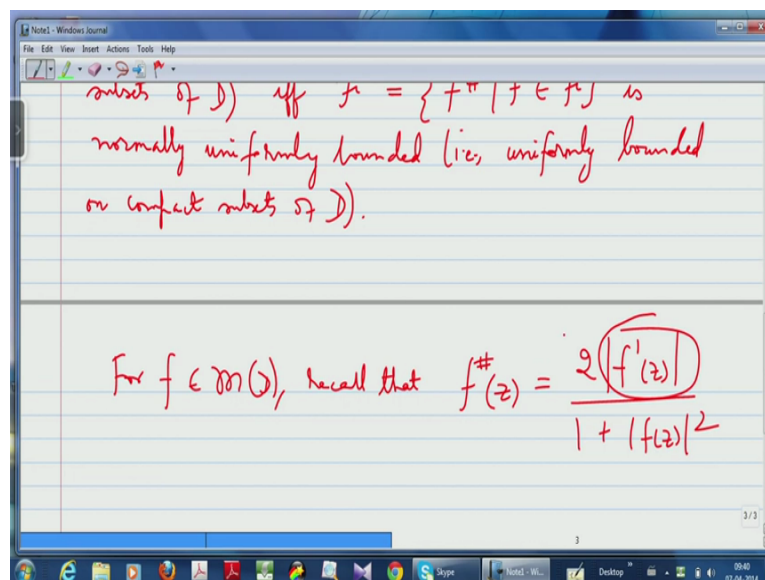 Note1 - Windows Journal
File Edit View Insert Actions Tools Help
subsets of D) iff F = { f# | f ∈ F } is
normally uniformly bounded (i.e., uniformly bounded
on compact subsets of D).
For f ∈ M(D), recall that f#(z) = 2|f'(z)| / 1 + |f(z)|²
3/3
3
Skype
Note1 - Wi...
Desktop
09:40